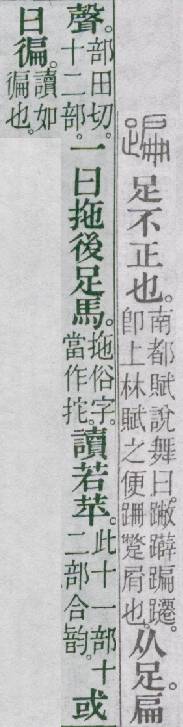 蹁 足不正也。南都賦說舞曰。䠥躃蹁躚。卽上林賦之便跚蹩屑也。从足。扁
聲。部田切。十二部。一曰拖後足馬。拖俗字。當作拕。讀若苹。此十一部十二部合韵。或
曰徧。讀如徧也。